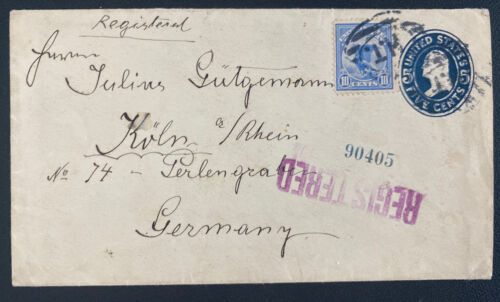 Registered
Herrn
Julius Gützemann
Köln a/Rhein
No 74 - Perlengraben
Germany
10 CENTS 10
UNITED STATES
FIVE CENTS
90405
REGISTERED